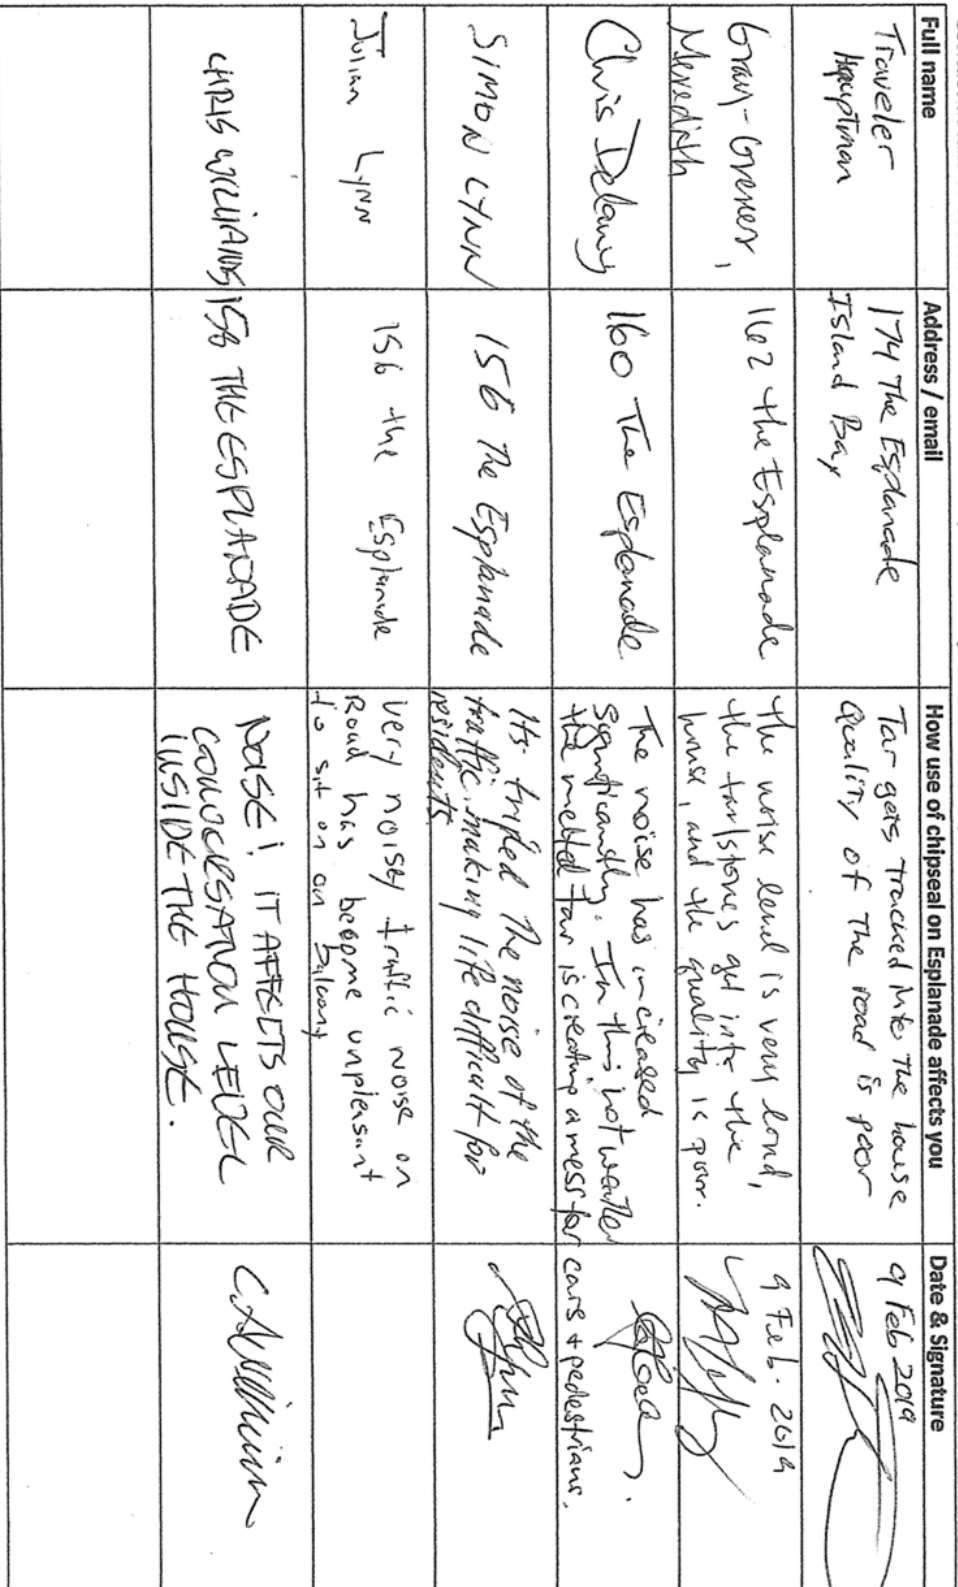 Full name
Address / email
How use of chipseal on Esplanade affects you
Date & Signature
Traveler
Hauptman
174 The Esplanade
Island Bay
Tar gets tracked into the house
Quality of the road is poor
9 Feb 2019
Meredith
162 the Esplanade
the noise level is very loud,
the tar/stones get into the
house, and the quality is poor.
9 Feb. 2019
Chris Delany
160 The Esplanade
The noise has increased
significantly. In this hot weather
the melted tar is creating a mess for cars + pedestrians.
SIMON LYNN
156 The Esplanade
Its tripled the noise of the
traffic. making life difficult for
residents
Julian Lynn
156 the Esplanade
very noisy traffic noise on
Road has become unpleasant
to sit on on balcony
CHRIS WILLIAMS
156 THE ESPLANADE
NOISE! IT AFFECTS OUR
LEVEL
INSIDE THE HOUSE.